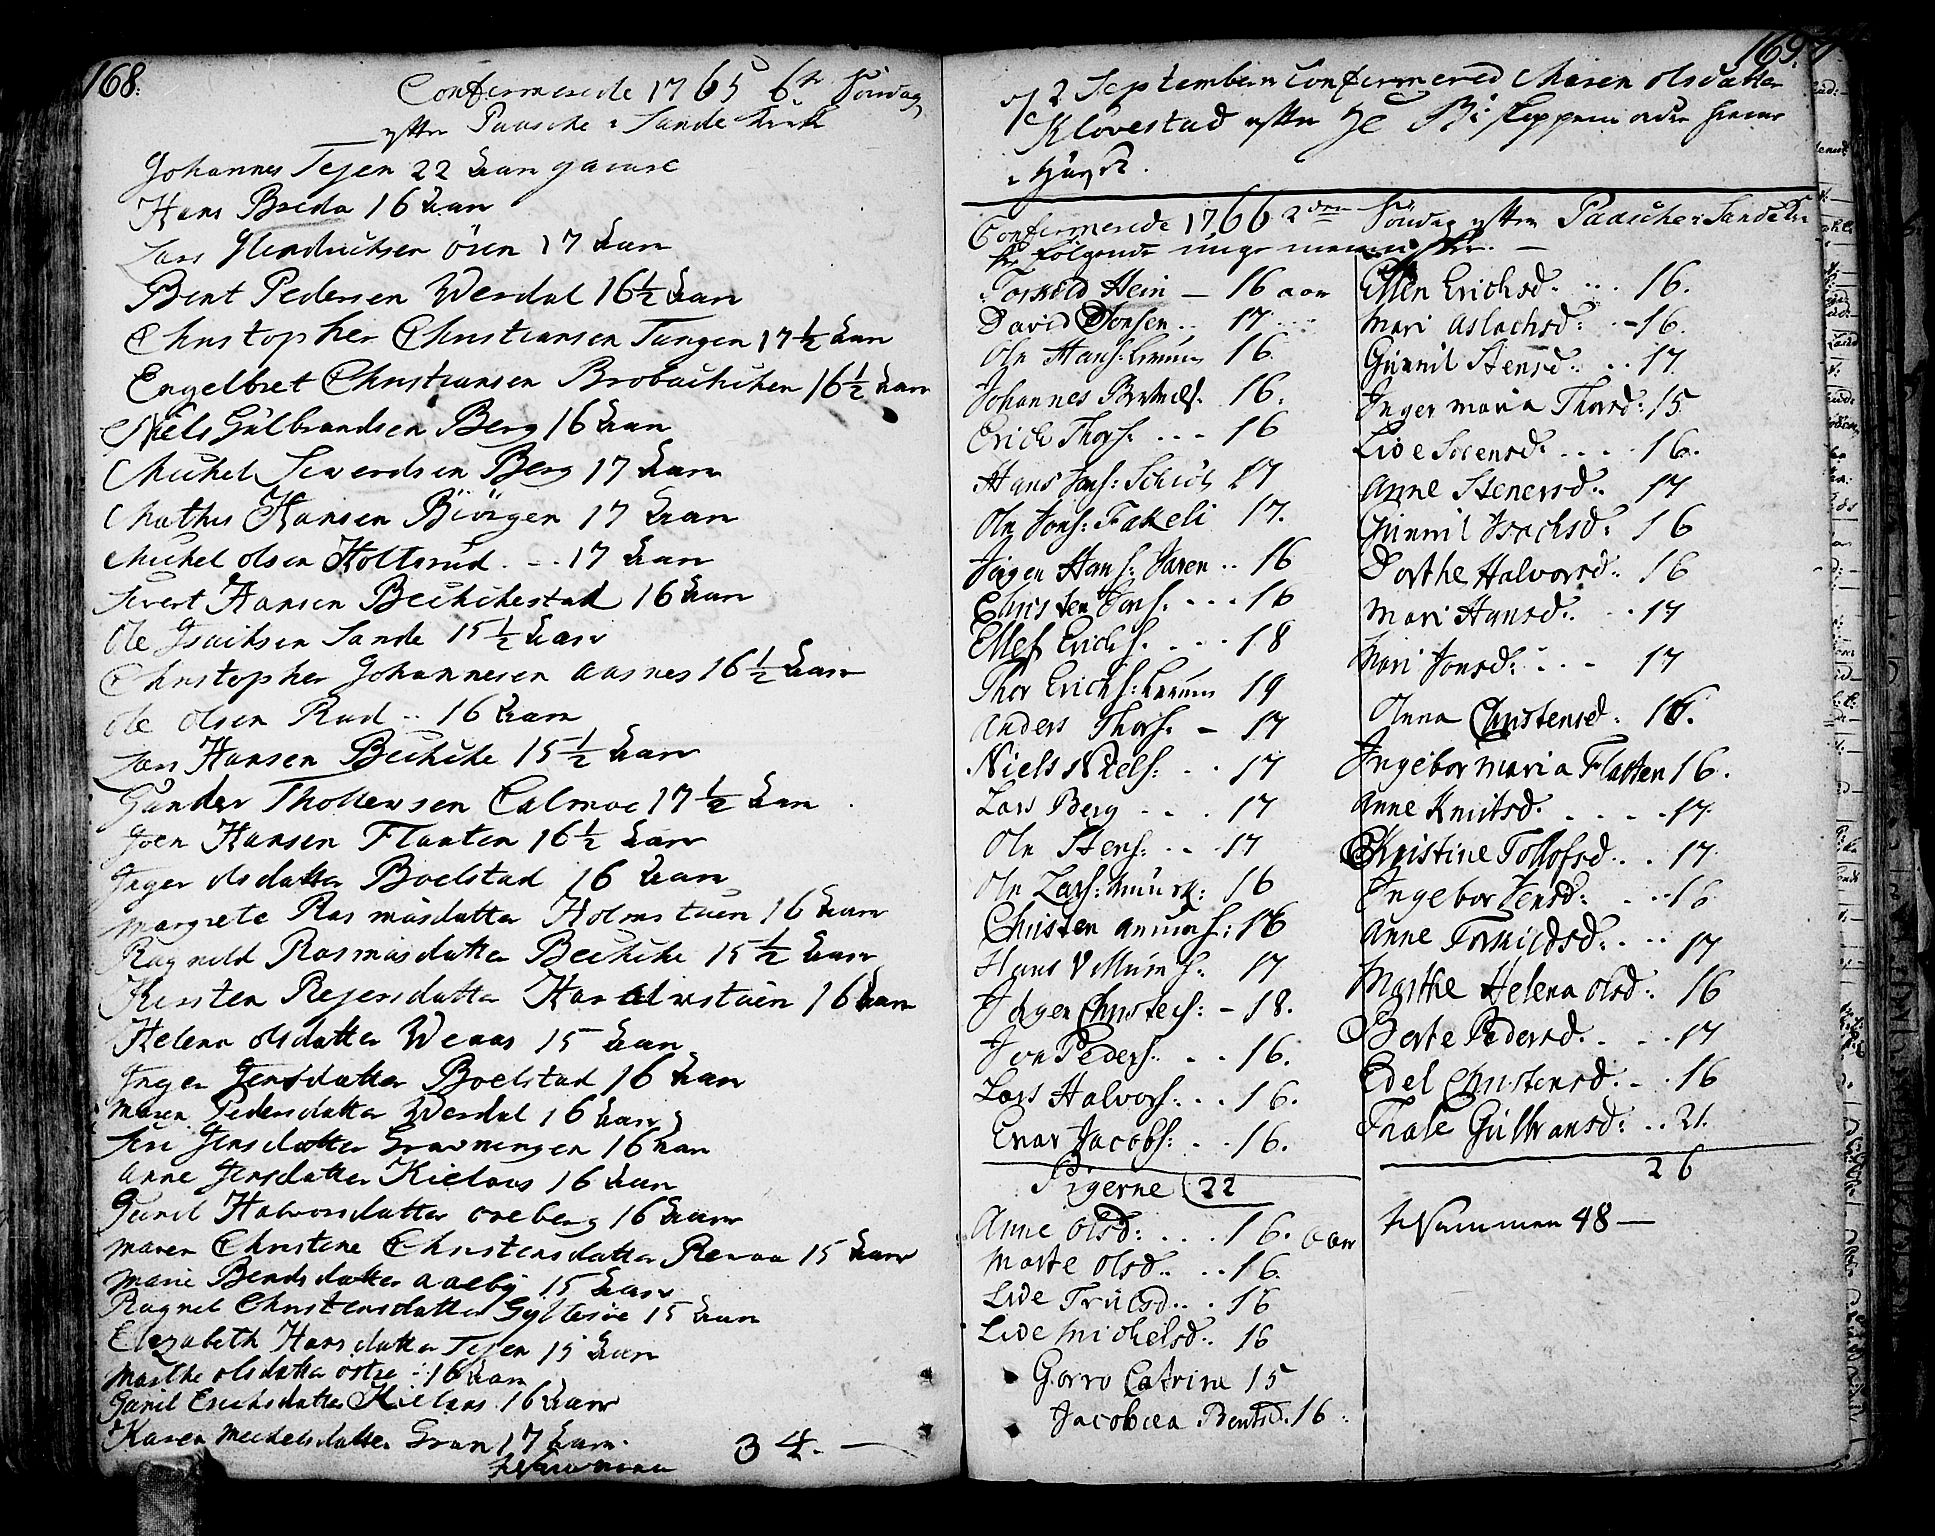 168.
Confirmerede 1765 6te Søndag
efter Paaske i Sande Kirke
Johannes Tejen 22 Aar gammel
Hans Breda 16 Aar
Lars Hendrichsen Øien 17 Aar
Bent Pedersen Werdal 16½ Aar
Christopher Christiansen Tangen 17½ Aar
Engelbret Christiansen 16½ Aar
Niels Gulbrandsen Berg 16 Aar
Michel Sewerdsen Berg 17 Aar
Mathis Hansen Biörgen 17 Aar
Michel olsen Holtsrud . . . 17 Aar
Sivert Hansen Bechchestad 16 Aar
Ole Isachsen Sande 15½ Aar
Christopher Johannesen Aasnes 16½ Aar
Ole Olsen Rud .. 16 Aar
Lars Hansen Bechche 15½ Aar
Gunder Thollewsen 17½ Aar
Joen Hansen Flaaten 16½ Aar
Inger olsdatter Boelstad 16 Aar
Margrete Rasmusdatter 16 Aar
Ragnild Rasmusdatter Bechche 15½ Aar
Kirsten Rejersdatter 16 Aar
Helena olsdatter Weaas 15 Aar
Inger Jensdatter Boelstad 16 Aar
Maren Pedersdatter Werdal 16 Aar
Siri Jensdatter Gravningen 16 Aar
Anne Jensdatter Kielaas 16 Aar
Gunil Halvorsdatter oreberg 16 Aar
Maren Christine Christensdatter Revaa 15 Aar
Marie Bendsdatter aaeby 15 Aar
Ragnil Christensdatter 15 Aar
Elizabeth Hansdatter Tejen 15 Aar
Marthe olsdatter østre .. 16 Aar
Gunil Erichsdatter Kielaas 16 Aar
Karen Michelsdatter Gran 17 Aar.
tilsammen 34. —
169.
2 September Confirmered Maren olsdatter
Klövestad efter Hr Biskoppens ordre
Confirmerede 1766 2den Søndag efter Paasche i Sande K:
følgende unge mennisker. —
Torkild Hein — 16 aar
David Jonsen .. 17
Ole Hans: 16
Johannes 16.
Erich Thors. . . . 16
Hans Jens: 17
Ole Jons: Fakeli 17.
Jörgen Hans: Jaren .. 16
Christen Jens. . . . 16
Ellef Erichs. . . . 18
Thor Erichs: 19
Anders Thors. — 17
Niels Niels: . . 17
Lars Berg . . . 17
Ole Stens: . . 17
Ole Lars: 16
Christen 16
Hans 17
Jörgen Christens: — 18.
Jon Peders. . . 16.
Lars Halvors. . . 16.
Enar Jacobs: . . 16.
Pigerne (22
Anne olsd: . . . 16. aar
Marte olsd.. . . 16.
Live Trulsd.. . 16
Live Michelsd.. 16
Gorro Catrine 15
Jacobea Bentsd. 16.
Ellen Erichsd. . . . 16.
Mari Aslachsd: . 16.
Gunnil Stensd. . . 17.
Inger Maria Thorsd: 15
Live Sörensd. . . . 16.
Anne Stenersd.. 17
Gunnil Isachsd: 16
Dorthe Halvorsd. 16
Mari Hansd. . . 17
Mari Jonsd: . . . 17
Anna Christensd. 16.
Ingebor Maria Flatten 16.
Anne Knutsd. . . . . 17.
Christine Tollofsd. . . 17
Ingebor Jensd: . . 16
Anne Torkildsd. . . . 17
Myrthe Helena olsd. 16
Berte Pedersd. . . . 17
Edel Christensd. . . 16
Thale Gulbransd: . . 21.
26
tilsammen 48 —